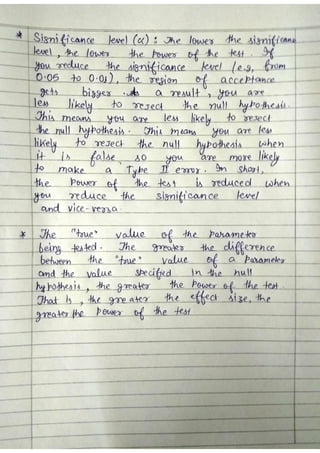 * Significance level (α) : The lower the significance
level, the lower the power of the test. If
you reduce the significance level (e.g, from
0.05 to 0.01), the region of acceptance
gets bigger. As a result, you are
less likely to reject the null hypothesis.
This means you are less likely to reject
the null hypothesis. This means you are less
likely to reject the null hypothesis when
it is false, so you are more likely
to make a Type II error. In short,
the power of the test is reduced when
you reduce the significance level
and vice-versa.
* The "true" value of the parameter
being tested. The greater the difference
between the "true" value of a parameter
and the value specified in the null
hypothesis, the greater the power of the test.
That is, the greater the effect size, the
greater the power of the test